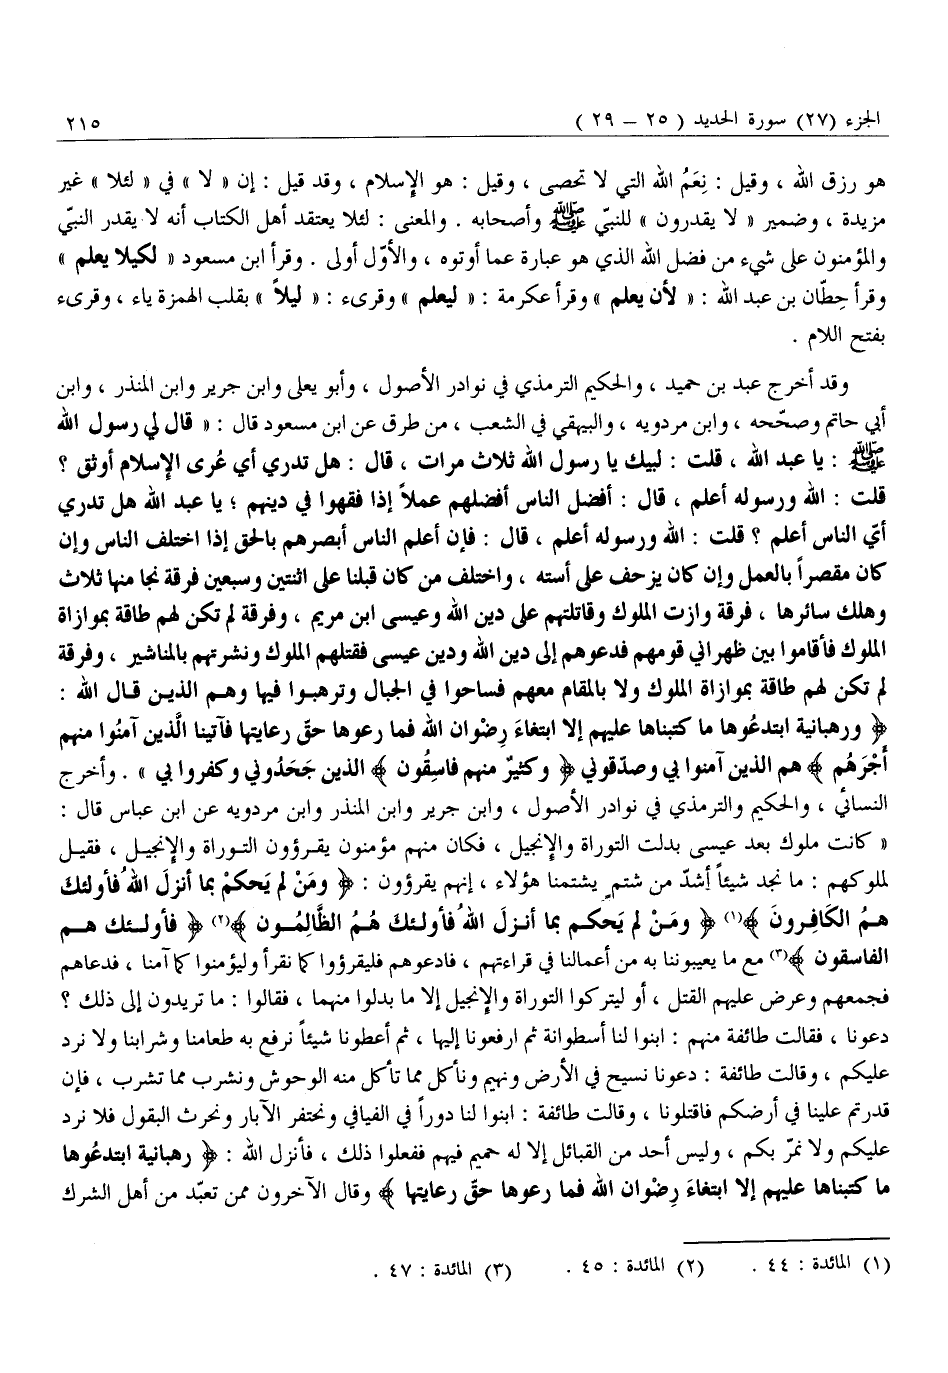 الجزء (٢٧) سورة الحديد ( ٢٥ – ٢٩ ) ٢١٥
هو رزق الله ، وقيل : نِعَمُ الله التي لا تحصى ، وقيل : هو الإسلام ، وقد قيل : إن « لا » في « لئلا » غير
مزيدة ، وضمير « لا يقدرون » للنبيّ ﷺ وأصحابه . والمعنى : لئلا يعتقد أهل الكتاب أنه لا يقدر النبيّ
والمؤمنون على شيء من فضل الله الذي هو عبارة عما أوتوه ، والأوّل أولى . وقرأ ابن مسعود « لكيلا يعلم »
وقرأ حِطّان بن عبد الله : « لأن يعلم » وقرأ عكرمة : « ليعلم » وقرىء : « ليلاً » بقلب الهمزة ياء ، وقرىء
بفتح اللام .
وقد أخرج عبد بن حميد ، والحكيم الترمذي في نوادر الأصول ، وأبو يعلى وابن جرير وابن المنذر ، وابن
أبي حاتم وصحّحه ، وابن مردويه ، والبيهقي في الشعب ، من طرق عن ابن مسعود قال : « قال لي رسول الله
ﷺ : يا عبد الله ، قلت : لبيك يا رسول الله ثلاث مرات ، قال : هل تدري أي عُرى الإسلام أوثق ؟
قلت : الله ورسوله أعلم ، قال : أفضل الناس أفضلهم عملاً إذا فقهوا في دينهم ؛ يا عبد الله هل تدري
أيّ الناس أعلم ؟ قلت : الله ورسوله أعلم ، قال : فإن أعلم الناس أبصرهم بالحق إذا اختلف الناس وإن
كان مقصراً بالعمل وإن كان يزحف على أسته ، واختلف من كان قبلنا على اثنتين وسبعين فرقة نجا منها ثلاث
وهلك سائرها ، فرقة وازت الملوك وقاتلتهم على دين الله وعيسى ابن مريم ، وفرقة لم تكن لهم طاقة بموازاة
الملوك فأقاموا بين ظهراني قومهم فدعوهم إلى دين الله ودين عيسى فقتلهم الملوك ونشرتهم بالمناشير ، وفرقة
لم تكن لهم طاقة بموازاة الملوك ولا بالمقام معهم فساحوا في الجبال وترهبوا فيها وهم الذين قال الله :
﴿ ورهبانية ابتدعُوها ما كتبناها عليهم إلا ابتغاءَ رِضْوان الله فما رعوها حقّ رعايتها فآتينا الَّذين آمنُوا منهم
أَجْرَهُم ﴾ هم الذين آمنوا بي وصدّقوني ﴿ وكثيرٌ منهم فاسِقُون ﴾ الذين جَحَدُوني وكفروا بي » . وأخرج
النسائي ، والحكيم والترمذي في نوادر الأصول ، وابن جرير وابن المنذر وابن مردويه عن ابن عباس قال :
« كانت ملوك بعد عيسى بدلت التوراة والإنجيل ، فكان منهم مؤمنون يقرؤون التوراة والإنجيل ، فقيل
لملوكهم : ما نجد شيئاً أشدّ من شتمٍ يشتمنا هؤلاء ، إنهم يقرؤون : ﴿ ومَنْ لم يَحكمْ بما أنزلَ اللهُ فأولئكَ
همُ الكَافِرونَ ﴾(١) ﴿ ومَنْ لم يَحكم بما أنزلَ اللهُ فأولئكَ هُمُ الظَّالِمُون ﴾(٢) ﴿ فأولئك هم
الفاسقون ﴾(٣) مع ما يعيبوننا به من أعمالنا في قراءتهم ، فادعوهم فليقرؤوا كما نقرأ وليؤمنوا كما آمنا ، فدعاهم
فجمعهم وعرض عليهم القتل ، أو ليتركوا التوراة والإنجيل إلا ما بدلوا منهما ، فقالوا : ما تريدون إلى ذلك ؟
دعونا ، فقالت طائفة منهم : ابنوا لنا أسطوانة ثم ارفعونا إليها ، ثم أعطونا شيئاً نرفع به طعامنا وشرابنا ولا نرد
عليكم ، وقالت طائفة : دعونا نسيح في الأرض ونهيم ونأكل مما تأكل منه الوحوش ونشرب مما تشرب ، فإن
قدرتم علينا في أرضكم فاقتلونا ، وقالت طائفة : ابنوا لنا دوراً في الفيافي ونحتفر الآبار ونحرث البقول فلا نرد
عليكم ولا نمرّ بكم ، وليس أحد من القبائل إلا له حميم فيهم ففعلوا ذلك ، فأنزل الله : ﴿ رهبانية ابتدعُوها
ما كتبناها عليهم إلا ابتغاءَ رِضْوان الله فما رعوها حقّ رعايتها ﴾ وقال الآخرون ممن تعبّد من أهل الشرك
(١) المائدة : ٤٤ . (٢) المائدة : ٤٥ . (٣) المائدة : ٤٧ .